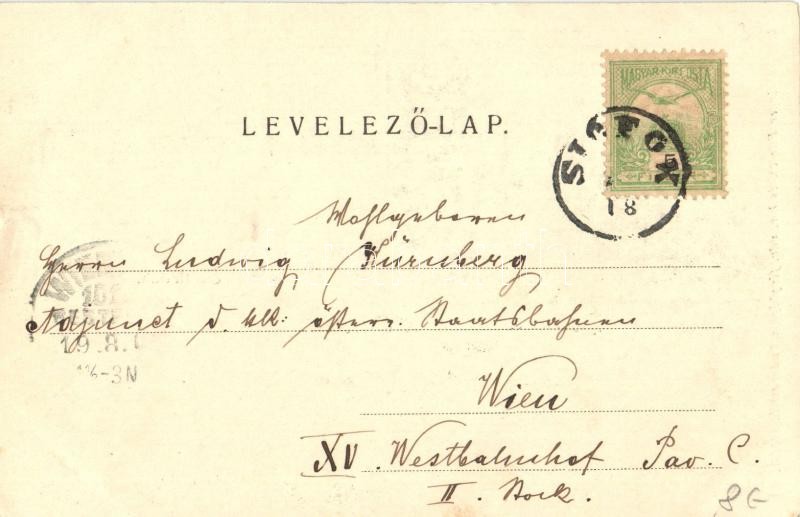 MAGYAR·KIR·POSTA
LEVELEZŐ-LAP.
SIÓFOK
18
Wohlgeboren
Herrn Ludwig Nürnberg
Adjunct d. kk. österr. Staatsbahnen
WIEN
19.8.
-3N
Wien
XV. Westbahnhof Pav. C.
II. Stock.
8€